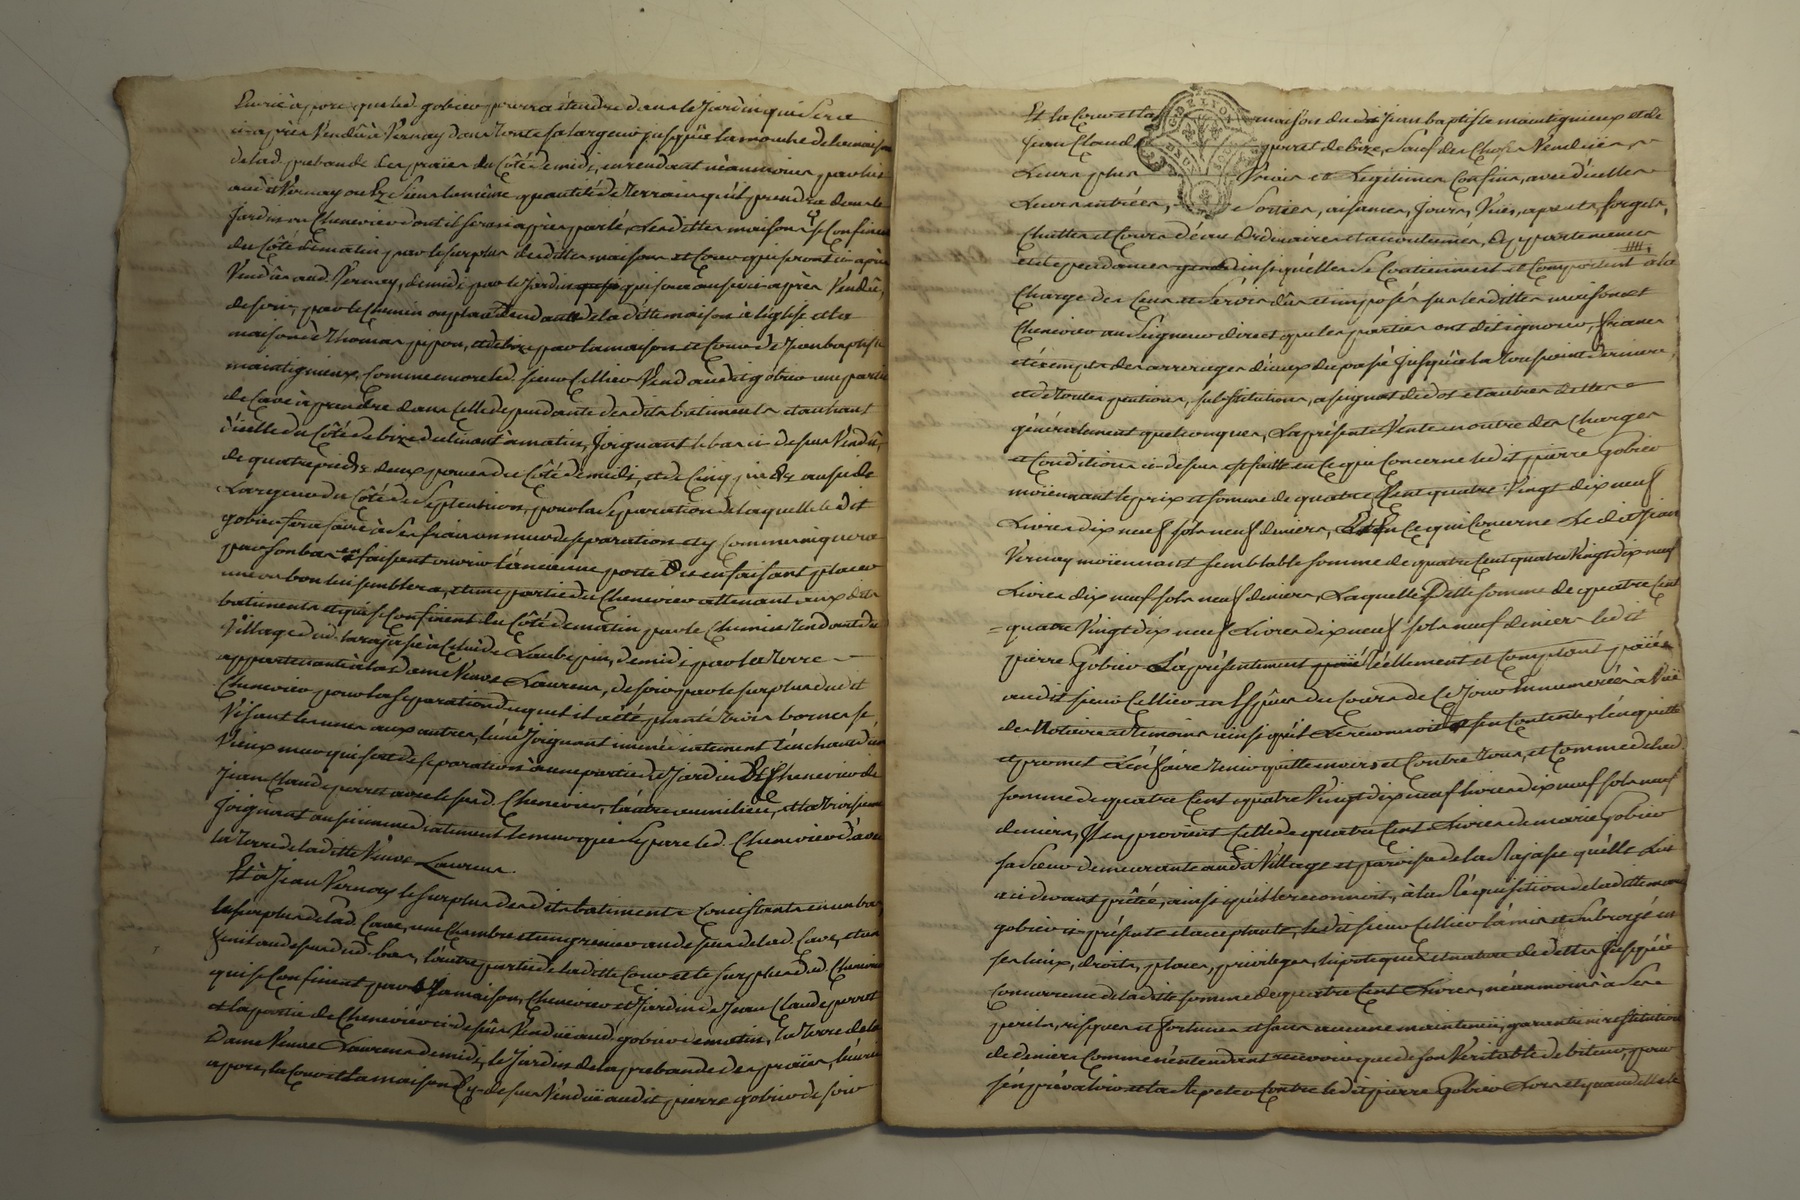 Ecurie à porc que led. gobier pourra étendre dans le Jardin qui sera
ci après Vendu à Vernay dans toute sa largeur jusqu'à la marche de la maison
de lad. prebande des praies du Côté de midi, en rendant néanmoins par lui
audit Vernay ou Ez Siens la même quantité de terrain qu'il prendra dans le
Jardin ou Chenevier dont il sera ci après parlé, Lesdittes maisons se Confinent
du Côté de matin par le surplus desdittes maisons et Cour qui seront ci après
Vendus aud. Vernay, de midi par le Jardin qui sera aussi ci après Vendu,
de soir, par le Chemin ou place tendante de la ditte maison à l'église et la
maison de Thomas pipon, et de bize par la maison et Cour de Jean baptiste
maintignieux, Comme encore led. sieur Cellier Vend audit gobier une partie
de Cave à prendre dans Celle dépendante desdits batiments et autant
d'icelle du Côté de bize declinant à matin, Joignant le bas ci dessus Vendu,
de quatre pieds deux pouces du Côté de midi, et de Cinq pieds aussi de
Largeur du Côté de Septentrion, pour la Séparation de laquelle ledit
gobier fera faire à Ses frais un mur de separation et y Communiquera
par son bas en faisant ouvrir l'ancienne porte ou en faisant placer
une ou bon lui semblera, et une partie du Chenevier attenant aux dits
batiments et qui se Confinent du Côté de matin par le Chemin tendant du
Village dud. la rajasse à Celui de Laubepin, de midi par la terre
appartenante à la dame Veuve Laurens, de soir par le surplus dudit
Chenevier pour la Separation duquel il a été planté trois bornes se
Visant les unes aux autres, l'une Joignant immédiatement l'en chaud du
Vieux mur qui sert de séparation à une partie du Jardin et Chenevier de
Jean Claude perret avec le susd. Chenevier, l'autre au milieu, et la troisieme
Joignant aussi immédiatement le mur qui Sépare led. Chenevier d'avec
la terre de laditte Veuve Laurens.
Et à Jean Vernay le surplus desdits batiments Consistants en un bas,
le surplus de lad. Cave, une Chambre et un grenier au dessus de lad. Cave, et un
fenil au dessus dud. bas, l'autre partie de laditte Cour et le surplus dud. Chenevier
qui se Confinent par la maison, Chenevier et Jardin de Jean Claude perret
et la partie de Chenevier ci-dessus Vendüe aud. gobier de matin, la terre de la
Dame Veuve Laurens de midi, le Jardin de la prebande des praies, l'écurie
à porc, la Cour et la maison Cy-dessus Vendüe audit pierre gobier de soir
Et la Cour et la maison dudit Jean baptiste maintignieux et de
Jean Claude perret de bize, Sauf des Choses Vendües
Leurs plus Vrais et Légitimes Confins, avec d'icelles
Leurs entrées, Sorties, aisances, Jours, Vües, aprets, forgets,
Chuttes et Cours d'eau Ordinaires et accoutumés, Et appartenances
et dependances ainsi qu'elles se Contiennent et Comportent à la
Charge des Cens et Servis dûs et imposés sur lesdittes maisons et
Chenevier au Seigneur direct que les parties ont dit ignorer, francs
et éxempts des arrerages d'iceux du passé Jusqu'à la toussaint derniere,
et de toutes pentions, substitutions, assignat de dot et autres dettes
généralement quelconques, La présente Vente en outre des Charges
et Conditions ci-dessus est faitte en Ce que Concerne ledit pierre Gobier
moïennant le prix et somme de quatre Cent quatre-Vingt dix neuf
Livres dix neuf sols neuf deniers, Et En Ce qui Concerne Ledit Jean
Vernay moïennant semblable somme de quatre Cent quatre Vingt dix neuf
Livres dix neuf sols neuf deniers, Laquelle Ditte somme de quatre Cent
= quatre Vingt dix neuf Livres dix neuf sols neuf deniers ledit
pierre Gobier L'a présentement réellement et Comptant païée
audit sieur Cellier en Espèces du Cours de Ce Jour Ennumérées à Vüe
des Notaires et temoins ainsi qu'il Le reconnoit s'en Contente, l'en quitte
et promet L'en faire tenir quitte envers et Contre tous, et Comme de lad.
somme de quatre Cent quatre Vingt dix neuf livres dix neuf sols neuf
deniers, Il en provient Celle de quatre Cent Livres de marie Gobier
sa Soeur demeurante audit Village et paroisse de la Rajasse qu'elle Lui
a ci devant prêtée, ainsi qu'il le reconnoit, à la Réquisition de laditte marie
gobier ci présente et acceptante, ledit sieur Cellier l'a mis et Subrogé en
ses lieux, droits, places, privileges, hipoteques et nature de dettes Jusqu'à
Concurrence de laditte somme de quatre Cent Livres, néanmoins à Ses
perils, risques et fortunes et sans aucune maintenüe, garantie ni restitution
de deniers Comme n'entendant recevoir que de son Veritable debiteur, pour
s'en prévaloir et la Repeter Contre ledit pierre Gobier Lors et quand elle le